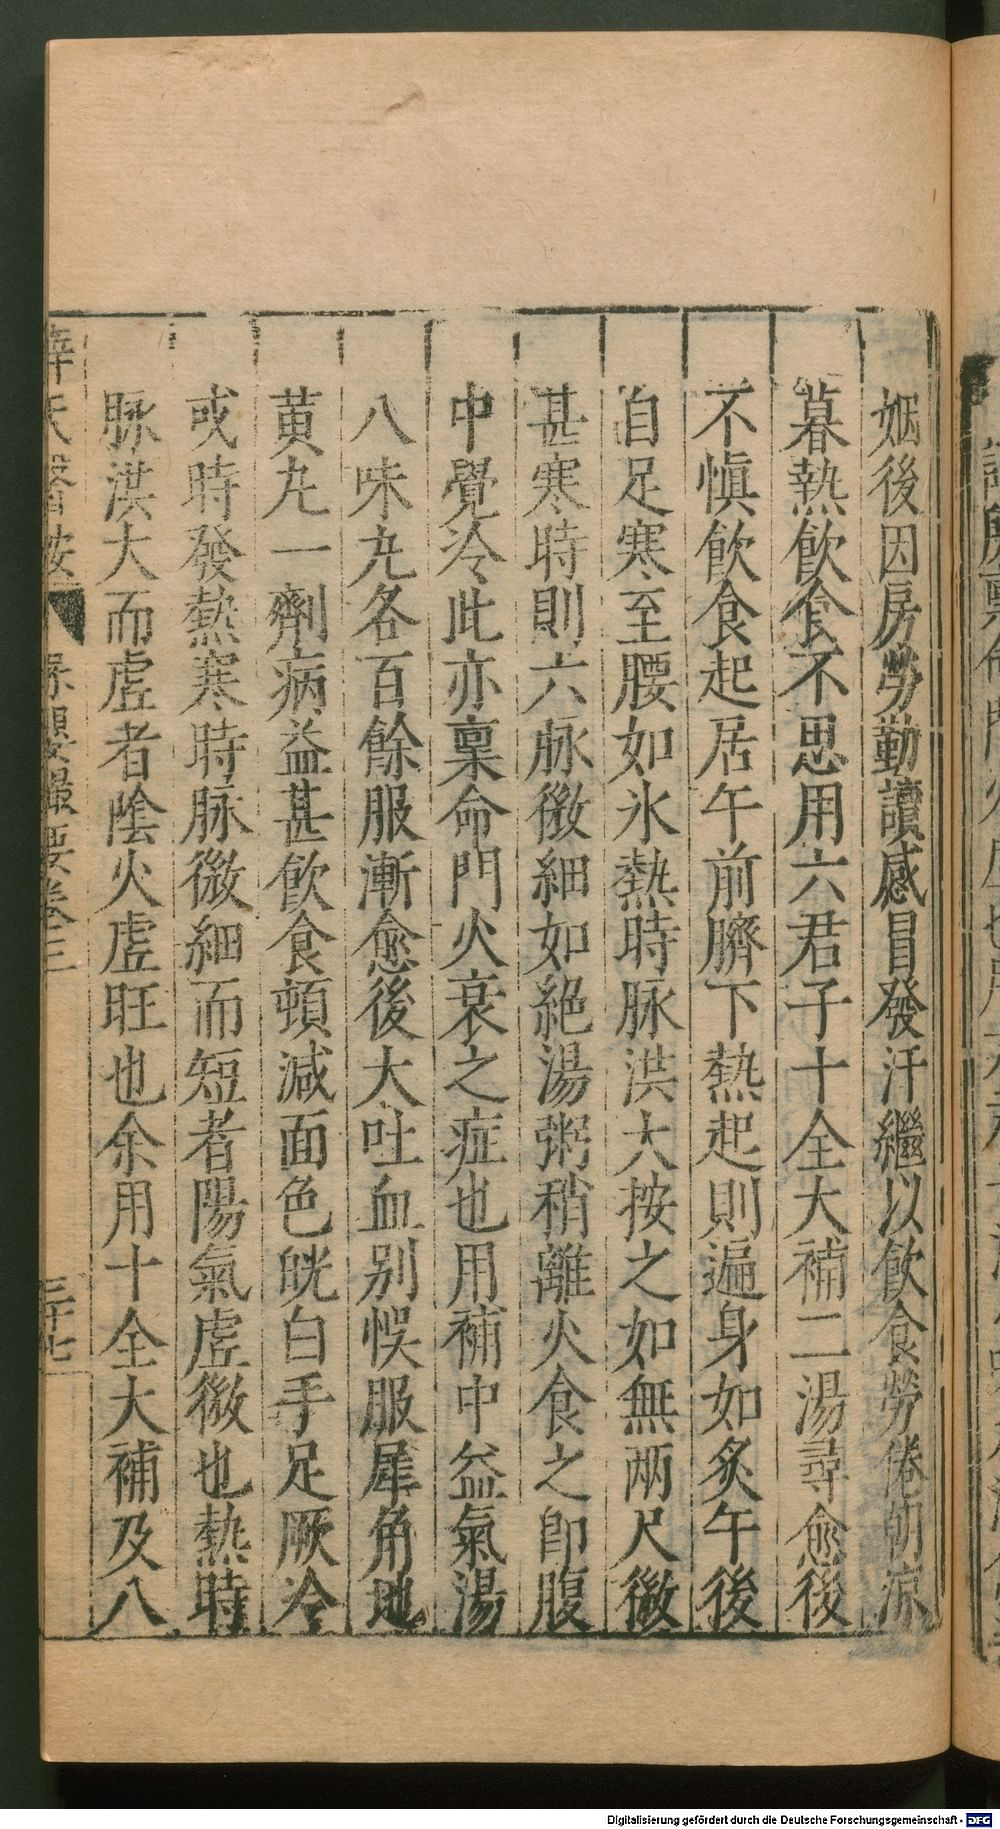 姻後因房勞勤讀感冒發汗繼以飲食勞倦朝涼
暮熱飲食不思用六君子十全大補二湯尋愈後
不愼飲食起居午前臍下熱起則遍身如炙午後
自足寒至腰如氷熱時脉洪大按之如無兩尺微
甚寒時則六脉微細如絕湯粥稍離火食之即腹
中覺冷此亦稟命門火衰之症也用補中益氣湯
八味丸各百餘服漸愈後大吐血别悞服犀角地
黄丸一劑病益甚飲食頓減面色㿠白手足厥冷
或時發熱寒時脉微細而短者陽氣虛微也熱時
脉洪大而虛者陰火虛旺也余用十全大補及八
薛氏醫按 保嬰撮要卷三 三十七
Digitalisierung gefördert durch die Deutsche Forschungsgemeinschaft - DFG